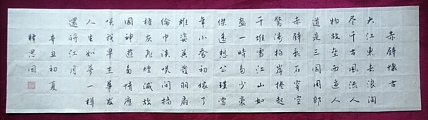 赤壁懷古
大江東去浪淘
盡千古風流人
物故壘西邊人
道是三國周郎
赤壁亂石穿空
驚濤拍岸捲起
千堆雪江山如
畫一時多少豪
傑遙想公瑾當
年小喬初嫁了
雄姿英發羽扇
綸巾談笑間檣
櫓灰飛煙滅故
國神遊多情應
笑我早生華髮
人生如夢一樽
還酹江月
辛丑初夏